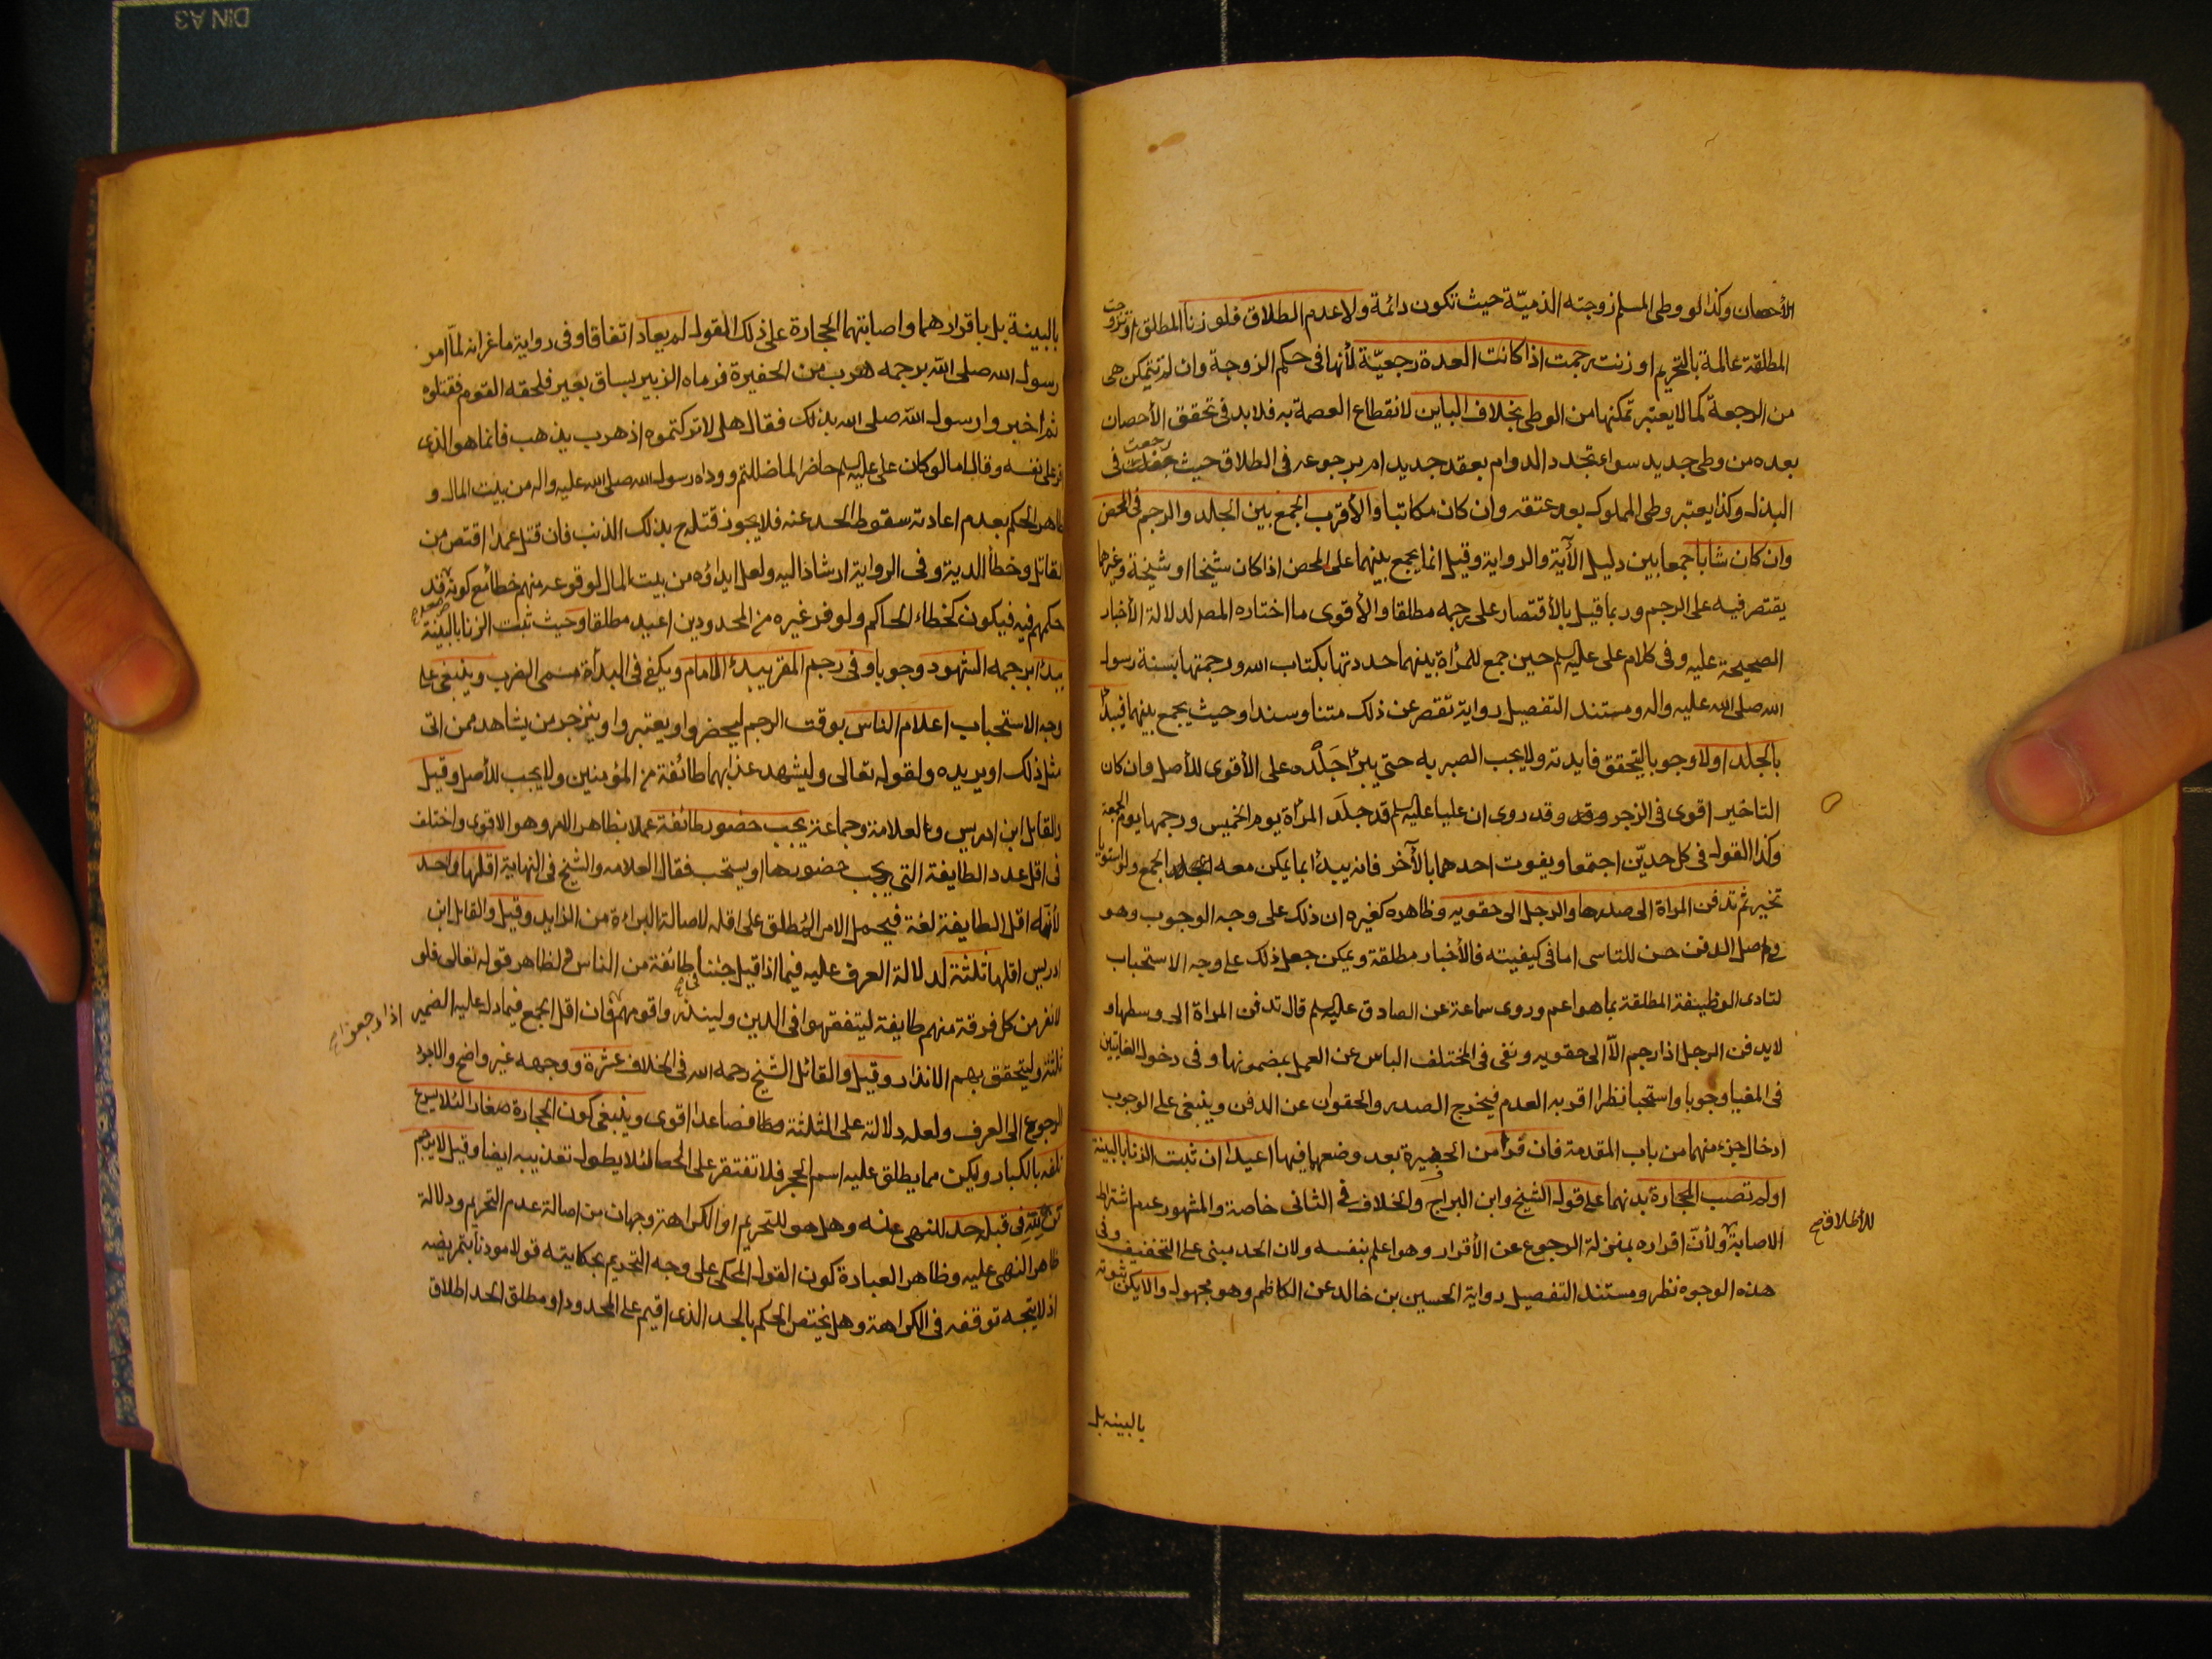 الأحصان وكذا لو وطى المسلم زوجته الذميّة حيث تكون دائمة ولا عدم الطلاق فلو زنا المطلق او تزوجت
المطلقة عالمة بالتحريم او زنت رجمت اذا كانت العدة رجعيّة لأنها فى حكم الزوجة وان لم تتمكن هى
من الرجعة كما لا يعتبر تمكنها من الوطى بخلاف الباين لانقطاع العصمة به فلا بد فى تحقق الأحصان
بعده من وطى جديد سواء تجدد الدوام بعقد جديد ام برجوعه فى الطلاق حيث رجعت فى
البذل وكذا يعتبر وطى المملوك بعد عتقه وان كان مكاتبا والأقرب الجمع بين الجلد والرجم فى المحصن
وان كان شابا جمعا بين دليل الآية والرواية وقيل انما يجمع بينهما على المحصن اذا كان شيخا او شيخة وغيرهما
يقتصر فيه على الرجم وربما قيل بالأقتصار على رجمه مطلقا والأقوى ما اختاره المصر لدلالة الأخبار
الصحيحة عليه وفى كلام على عليه السلم حين جمع للمرأة بينهما حددتها بكتاب الله ورجمتها بسنة رسول
الله صلى الله عليه واله ومستند التفصيل رواية تقصر عن ذلك متنا وسندا وحيث يجمع بينهما فيبدأ
بالجلد اولا وجوبا لتحقق فايدته ولا يجب الصبر به حتى يبرأ جَلْدُه على الأقوى للأصل وان كان
التاخير اقوى فى الزجر وقد وقد روى ان عليا عليه السلم قد جلد المرأة يوم الخميس ورجمها يوم الجمعة
وكذا القول فى كل حديّن اجتمعا ويفوت احدهما بالآخر فانه يبدأ بما يمكن معه الجمع ولو استويا
تخير ثم تدفن المراة الى صدرها والرجل الى حقويه وظاهره كغيره ان ذلك على وجه الوجوب وهو
فى اصل الدفن حسن للتاسى اما فى كيفيته فالأخبار مطلقة ويمكن جعل ذلك على وجه الاستحباب
لتادى الوظيفة المطلقة بما هو اعم وروى سماعة عن الصادق عليه السلم قال تدفن المراة الى وسطها و
لا يدفن الرجل اذا رجم الّا الى حقويه ونفى فى المختلف الباس عن العمل بمضمونها وفى دخول الغايتين
فى المغيا وجوبا واستحبابا نظر اقربه العدم فيخرج الصدر والحقوان عن الدفن وينبغى على الوجوب
ادخال جزء منهما من باب المقدمة فان فرّا من الحفيرة بعد وضعهما فيها اعيدا ان ثبت الزنا بالبينة
او لم تصب الحجارة بدنهما على قول الشيخ وابن البراج والخلاف فى الثانى خاصة والمشهور عدم اشتراط
الاصابة ولأنّ اقراره بمنزلة الرجوع عن الأقرار وهو اعلم بنفسه ولان الحد مبنى على التخفيف وفى
للأطلاق صح
هذه الوجوه نظر ومستند التفصيل رواية الحسين بن خالد عن الكاظم وهو مجهول والا يكن ثبوته
بالبينه بل
بالبينة بل باقرارهما واصابتهما الحجارة على ذلك القول لم يعاد اتفاقا وفى رواية ماغر انه لمّا امر
رسول الله صلى الله برجمه هرب من الحفيرة فرماه الزبير بساق بعير فلحقه القوم فقتلوه
ثم اخبروا رسول الله صلى الله بذلك فقال هلا لا تركتموه اذ هرب يذهب فانما هو الذى
اقر على نفسه وقال اما لو كان على عليه السلم حاضرا لما ضللتم ووداه رسول الله صلى الله عليه واله من بيت المال و
ظاهر الحكم بعدم اعادته سقوط الحد عنه فلا يجوز قتله ح بذلك الذنب فان قتل عمدا اقتص من
القاتل وخطأ الدية وفى الرواية ارشاد اليه ولعل ايداؤه من بيت المال لوقوعه منهم خطأ مع كونه قد
حكمهم فيه فيكون كخطاء الحاكم ولو فر غيره من المحدودين اعيد مطلقا وحيث ثبت الزنا بالبينة
يبدأ برجمه الشهود وجوبا وفى رجم المقر يبدأ الامام ويكفى فى البدأة مسمى الضرب وينبغى على
وجه الاستحباب اعلام الناس بوقت الرجم ليحضروا ويعتبروا وينزجر من يشاهد ممن اتى
مثل ذلك او يريده ولقوله تعالى وليشهد عذابهما طائفة من المؤمنين ولا يجب للأصل وقيل
والقايل ابن ادريس والعلامة وجماعة يجب حضور طائفة عملا بظاهر الامر وهو الاقوى واختلف
فى اقل عدد الطايفة التى يجب حضورها او يستحب فقال العلامه والشيخ فى النهاية اقلها واحد
لأنه اقل الطايفة لغة فيحمل الامر المطلق على اقله لاصالة البراءة من الزايد وقيل والقايل ابن
ادريس اقلها ثلثة لدلالة العرف عليه فيما اذا قيل جئنا فى طائفة من الناس ولظاهر قوله تعالى فلو
لا نفر من كل فرقة منهم طايفة ليتفقهوا فى الدين ولينذروا قومهم فان اقل الجمع فيما دل عليه الضمير
اذا رجعوا صح
ثلثة وليتحقق بهم الانذار وقيل والقائل الشيخ رحمه الله فى الخلاف عشرة ووجهه غير واضح والاجود
الرجوع الى العرف ولعله دلالة على الثلثة فصاعدا اقوى وينبغى كون الحجارة صغارا لئلا يسرع
تلفه بالكبار وليكن مما يطلق عليه اسم الحجر فلا تقتصر على الحصا لئلا يطول تعذيبه ايضا وقيل لا يرجم
من لله فى قبله حد للنهى عنه وهل هو للتحريم او الكراهة وجهان من اصالة عدم التحريم ودلالة
ظاهر النهى عليه وظاهر العبارة كون القول المحكى على وجه التحريم بحكايته قولا موذنا بتمريضه
اذ لا يتجه توقفه فى الكراهة وهل يختص الحكم بالحد الذى اقيم على المحدود او مطلق الحد اطلاق